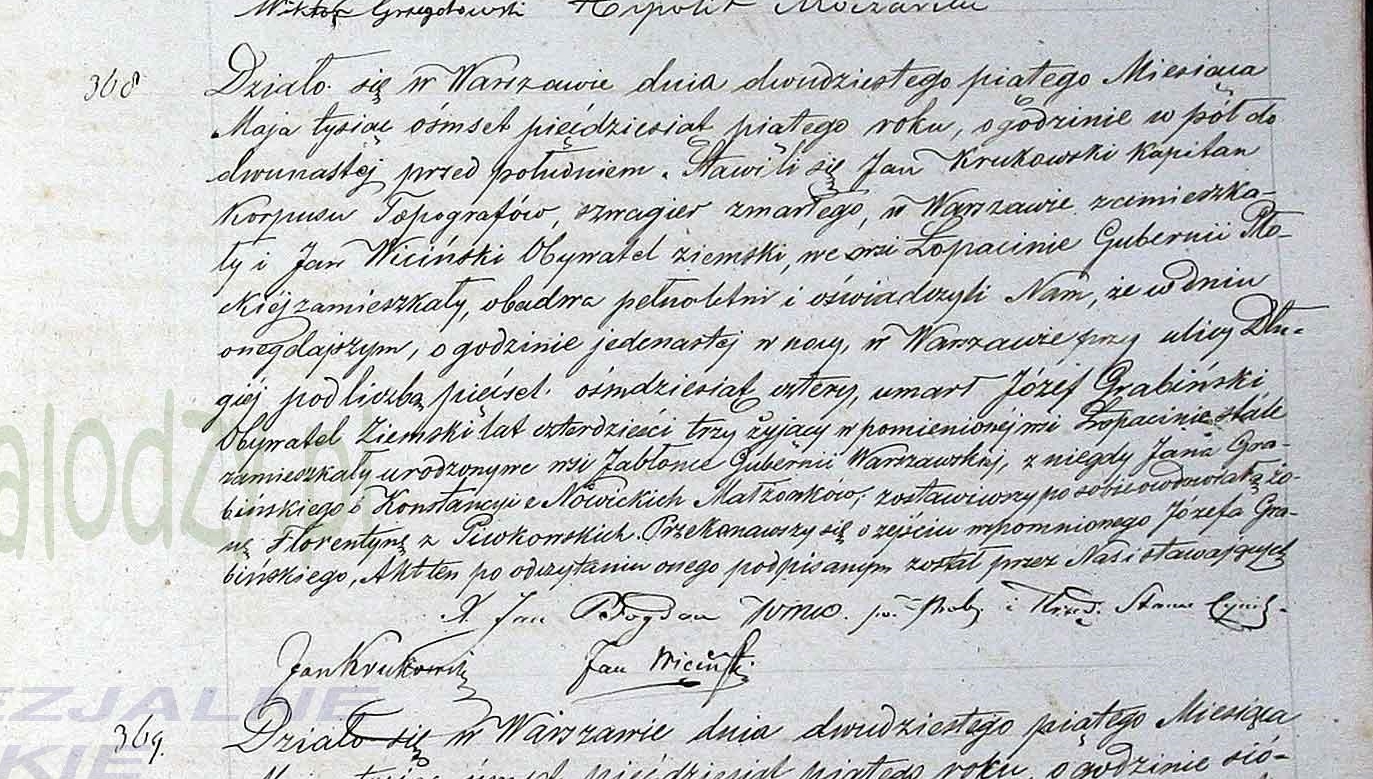 Wiktor Grzegotowski Hipolit
368 Działo się w Warszawie dnia dwudziestego piątego Miesiąca
Maja tysiąc ośmset pięćdziesiąt piątego roku, o godzinie w pół do
dwunastéj przed południem. Stawili się Jan Krukowski Kapitan
Korpusu Topografów, szwagier zmarłego, w Warszawie zamieszka-
ły i Jan Wiciński Obywatel ziemski, we wsi Łopacinie Gubernii Pło-
ckiéj zamieszkały, obadwa pełnoletni i oświadczyli Nam, że w dniu
onegdajszym, o godzinie jedenastéj w nocy, w Warszawie przy ulicy Dłu-
giéj pod liczbą pięćset ośmdziesiąt cztery, umarł Józef Grabiński
Obywatel Ziemski lat czterdzieści trzy żyjący w pomienionéj wsi Łopacinie stale
zamieszkały urodzony we wsi Jabłonce Gubernii Warszawskiéj, z niegdy Jana Gra-
bińskiego i Konstancyi z Nowickich Małżonków; zostawiwszy po sobie owdowiałą żo-
nę Florentynę z Piwkowskich. Przekonawszy się o zejściu wspomnionego Józefa Gra-
bińskiego, Akt ten po odczytaniu onego podpisanym został przez Nas i stawających
X Jan Bogdan
Jan Krukowski Jan Wiciński
369. Działo się w Warszawie dnia dwudziestego piątego Miesiąca
Maja tysiąc ośmset pięćdziesiąt piątego roku, o godzinie sió-
alodz.pl
EZJALNE
KIE